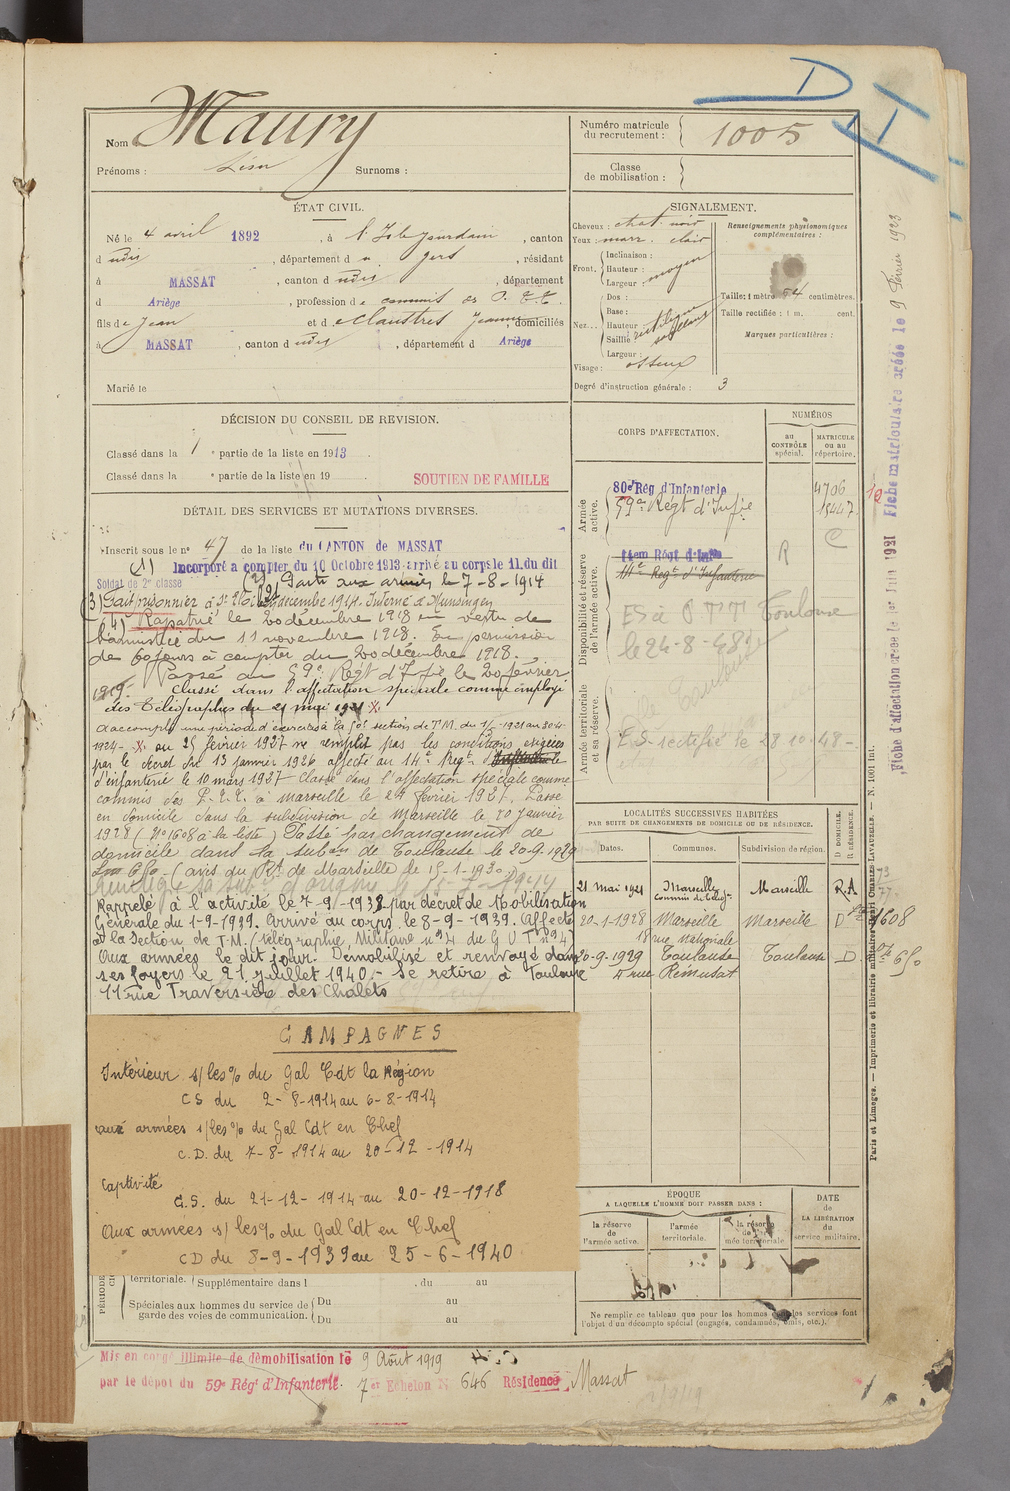 D I
Nom Maury
Prénoms : Léon Surnoms :
Numéro matricule du recrutement : 1005
Classe de mobilisation :
ÉTAT CIVIL.
Né le 4 avril 1892, à l'Isle Jourdain, canton
dudit, département du Gers, résidant
à MASSAT, canton dudit, département
d Ariège, profession de commis des P.T.T.
fils de Jean et de Claustres Jeanne, domiciliés
à MASSAT, canton dudit, département d Ariège
Marié le
SIGNALEMENT.
Cheveux : chat. noir
Yeux : marr. clair
Front. Inclinaison :
Hauteur : moyen
Largeur :
Nez... Dos :
Base :
Hauteur : rectiligne
Saillie :
Largeur :
Visage : osseux
Renseignements physionomiques complémentaires :
Taille : 1 mètre 54 centimètres.
Taille rectifiée : 1 m. cent.
Marques particulières :
Degré d'instruction générale : 3
DÉCISION DU CONSEIL DE REVISION.
Classé dans la 1 e partie de la liste en 1913
Classé dans la e partie de la liste en 19
SOUTIEN DE FAMILLE
DÉTAIL DES SERVICES ET MUTATIONS DIVERSES.
Inscrit sous le n° 47 de la liste du CANTON de MASSAT
(1) Incorporé a compter du 10 Octobre 1913 arrivé au corps le 11 du dit
Soldat de 2e classe (2) Parti aux armées le 7-8-1914
(3) Fait prisonnier à St décembre 1914. Interné à Munsingen
(4) Rapatrié le 20 décembre 1918 en vertu de
l'armistice du 11 novembre 1918. En permission
de 60 jours à compter du 20 décembre 1918.
Passé au 59e Régt d'Ifie le 20 février
1919. Classé dans l'affectation spéciale comme employé
des Télégraphes du 21 mai 1921 X
a accompli une période d'exercices à la section de T.M. du
1924 - X au 25 février 1927 ne remplit pas les conditions exigées
par le décret du 13 janvier 1926, affecté au 14e Régt
d'infanterie le 10 mars 1927 Classé dans l'affectation spéciale comme
commis des P.T.T. à Marseille le 24 février 1927. Passé
en domicile dans la subdivision de Marseille le 20 janvier
1928 (N° 1608 à la liste) Passé par changement de
domicile dans la subdon de Toulouse le 20-9-1929
650 - (avis du Rt de Marseille du 15-1-1930)
Rappelé à l'activité le 7-9-1939 par décret de Mobilisation
Générale du 1-9-1939. Arrivé au corps le 8-9-1939. Affecté
à la Section de T.M. (télégraphie Militaire n° 4 du G U T n° 4)
Aux armées le dit jour. Démobilisé et renvoyé dans
ses foyers le 21 juillet 1940. - Se retire à Toulouse
11 rue Traversière des Chalets
CORPS D'AFFECTATION.
NUMÉROS
au CONTRÔLE spécial.
MATRICULE ou au répertoire.
Armée active.
80e Rég d'Infanterie 4706
59e Régt d'Infie 15447
Disponibilité et réserve de l'armée active.
14em Régt d'Infie
14e Régt d'Infanterie R C
ES à P T T Toulouse
le 24-8-48
Armée territoriale et sa réserve.
E.S. rectifié le 28-10-48 -
LOCALITÉS SUCCESSIVES HABITÉES
PAR SUITE DE CHANGEMENTS DE DOMICILE OU DE RÉSIDENCE.
Dates. Communes. Subdivision de région. D DOMICILE. R RÉSIDENCE.
21 mai 1921 Marseille Marseille R.A
20-1-1928 Marseille Marseille D 1608
18 rue Nationale
20-9-1929 Toulouse Toulouse D 650
5 rue Rémusat
CAMPAGNES
Intérieur s/ les % du Gal Cdt la Région
CS du 2-8-1914 au 6-8-1914
aux armées s/ les % du Gal Cdt en Chef
C.D. du 7-8-1914 au 20-12-1914
Captivité
C.S. du 21-12-1914 au 20-12-1918
Aux armées s/ les % du Gal Cdt en Chef
CD du 8-9-1939 au 25-6-1940
territoriale. Supplémentaire dans l , du au
Spéciales aux hommes du service de garde des voies de communication.
Du au
Du au
ÉPOQUE
A LAQUELLE L'HOMME DOIT PASSER DANS :
la réserve de l'armée active.
l'armée territoriale.
la réserve de l'armée territoriale
DATE de LA LIBÉRATION du service militaire.
Ne remplir ce tableau que pour les hommes dont les services font
l'objet d'un décompte spécial (engagés, condamnés, omis, etc.).
Mis en congé illimité de démobilisation le 9 Août 1919
par le dépôt du 59e Régt d'Infanterie. 7e Echelon N 646 Résidence Massat
Fiche d'affectation créée le 1er Juin 1921 Fiche matriculaire créée le 9 Février 1923
Paris et Limoges. — Imprimerie et librairie militaires Henri CHARLES-LAVAUZELLE. — N. 1001 int.